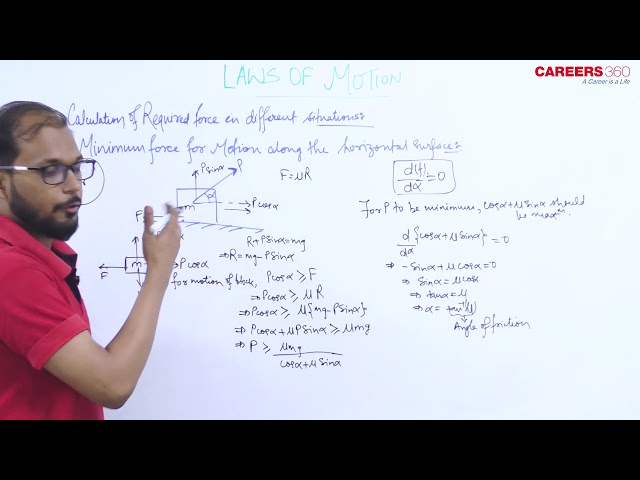 CAREERS360
A Career is a Life
LAWS OF MOTION
Calculation of Required force in different situations:
Minimum force for Motion along the horizontal surface:
Psinα
P
α
m
Pcosα
F
F = μR
F
m
Pcosα
R + Psinα = mg
⇒ R = mg - Psinα
for motion of block, Pcosα ≥ F
⇒ Pcosα ≥ μR
⇒ Pcosα ≥ μ{mg - Psinα}
⇒ Pcosα + μPsinα ≥ μmg
⇒ P ≥ μmg
cosα + μsinα
d(f)/dα = 0
For P to be minimum, cosα + μsinα should
be max^m.
d/dα {cosα + μsinα} = 0
⇒ -sinα + μcosα = 0
⇒ sinα = μcosα
⇒ tanα = μ
⇒ α = tan⁻¹(μ)
Angle of friction